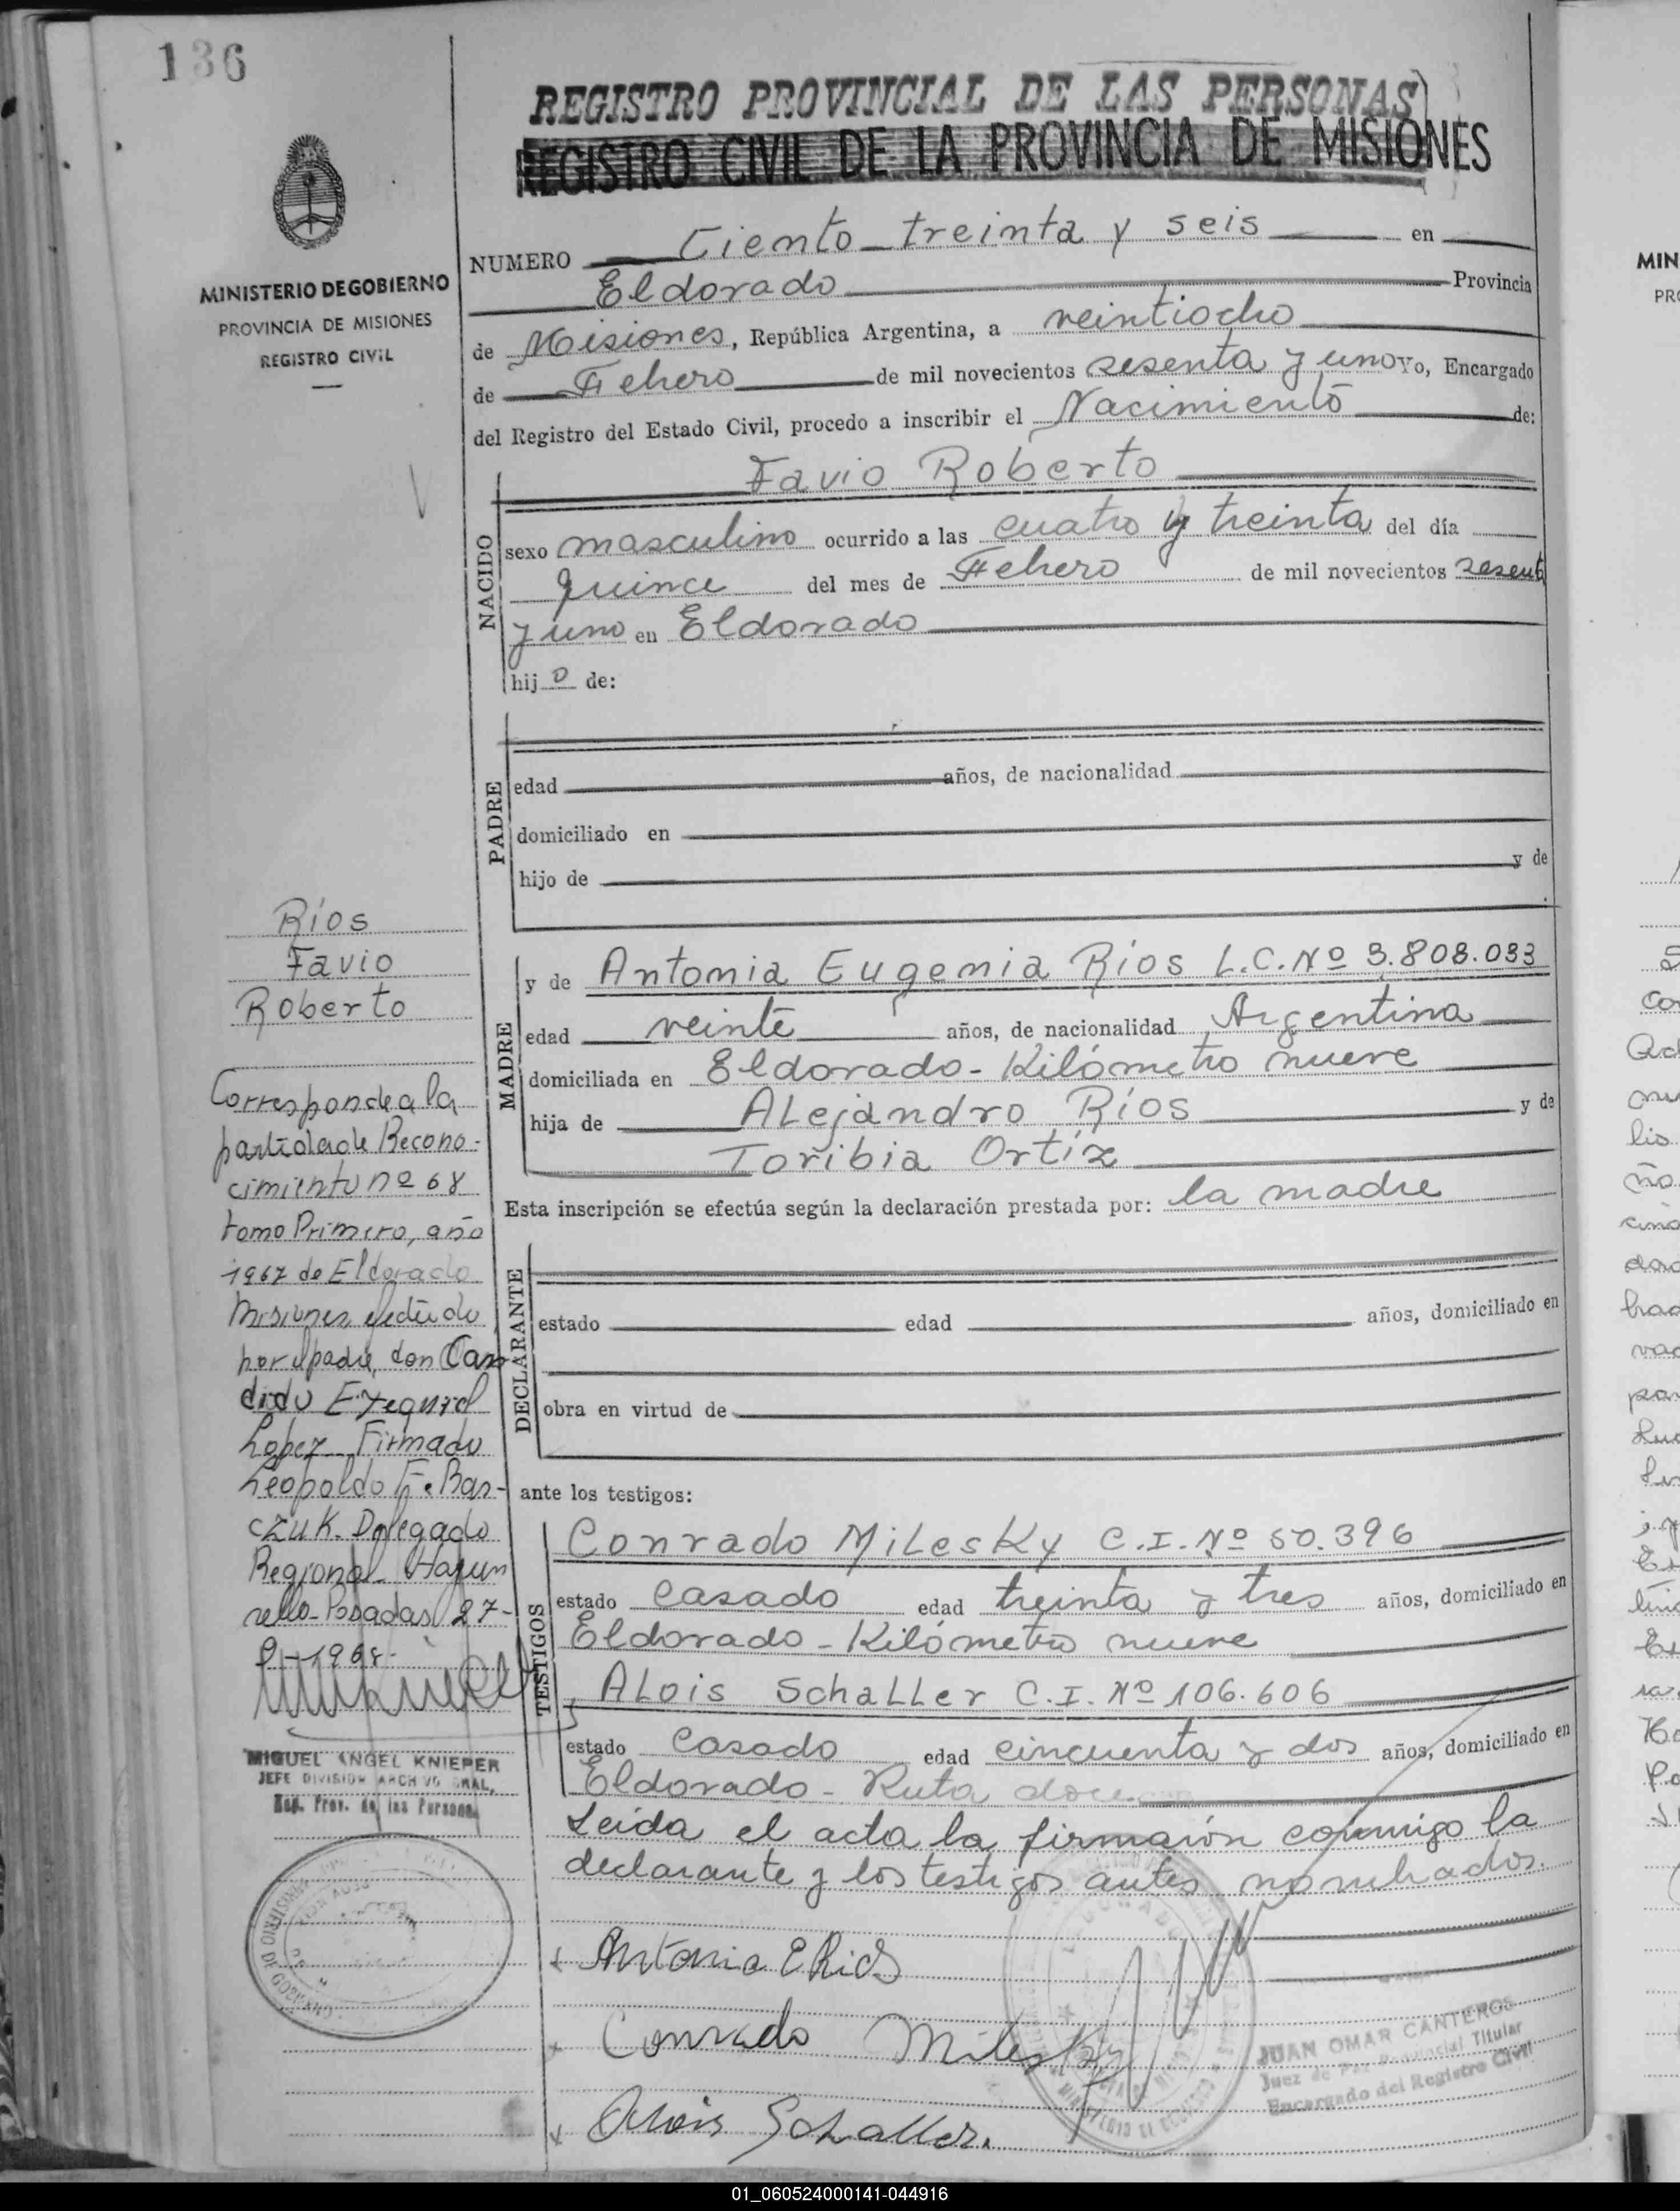 136
REGISTRO PROVINCIAL DE LAS PERSONAS
REGISTRO CIVIL DE LA PROVINCIA DE MISIONES
MINISTERIO DE GOBIERNO
PROVINCIA DE MISIONES
REGISTRO CIVIL
NUMERO Ciento treinta y seis en
Eldorado Provincia
de Misiones, República Argentina, a veintiocho
de Febrero de mil novecientos sesenta y uno Yo, Encargado
del Registro del Estado Civil, procedo a inscribir el Nacimiento de:
Favio Roberto
NACIDO
sexo masculino ocurrido a las cuatro y treinta del día
quince del mes de Febrero de mil novecientos sesenta
y uno en Eldorado
hijo de:
PADRE
edad años, de nacionalidad
domiciliado en
hijo de y de
MADRE
y de Antonia Eugenia Ríos L.C.Nº 3.808.033
edad veinte años, de nacionalidad Argentina
domiciliada en Eldorado - Kilómetro nueve
hija de Alejandro Ríos y de
Toribia Ortíz
Esta inscripción se efectúa según la declaración prestada por: la madre
DECLARANTE
estado edad años, domiciliado en
obra en virtud de
ante los testigos:
TESTIGOS
Conrado Milesky C.I.Nº 50.396
estado casado edad treinta y tres años, domiciliado en
Eldorado - Kilómetro nueve
Alois Schaller C.I.Nº 106.606
estado casado edad cincuenta y dos años, domiciliado en
Eldorado - Ruta doce
Leída el acta la firmaron conmigo la
declarante y los testigos antes nombrados.
Antonia E Rios
Conrado Milesky
Alois Schaller.
JUAN OMAR CANTEROS
Juez de Paz Provincial Titular
Encargado del Registro Civil
Ríos
Favio
Roberto
Corresponde a la
partida de Recono-
cimiento nº 68
tomo Primero, año
1967 de Eldorado
Misiones efectuado
por el padre, don Can
dido Ezequiel
Lopez Firmado
Leopoldo F. Bar-
czuk. Delegado
Regional
Posadas 27-
1968-
MIGUEL ANGEL KNIEPER
JEFE DIVISION ARCHIVO GRAL,
Reg. Prov. de las Personas
MINISTERIO DE GOBIERNO
01_060524000141-044916